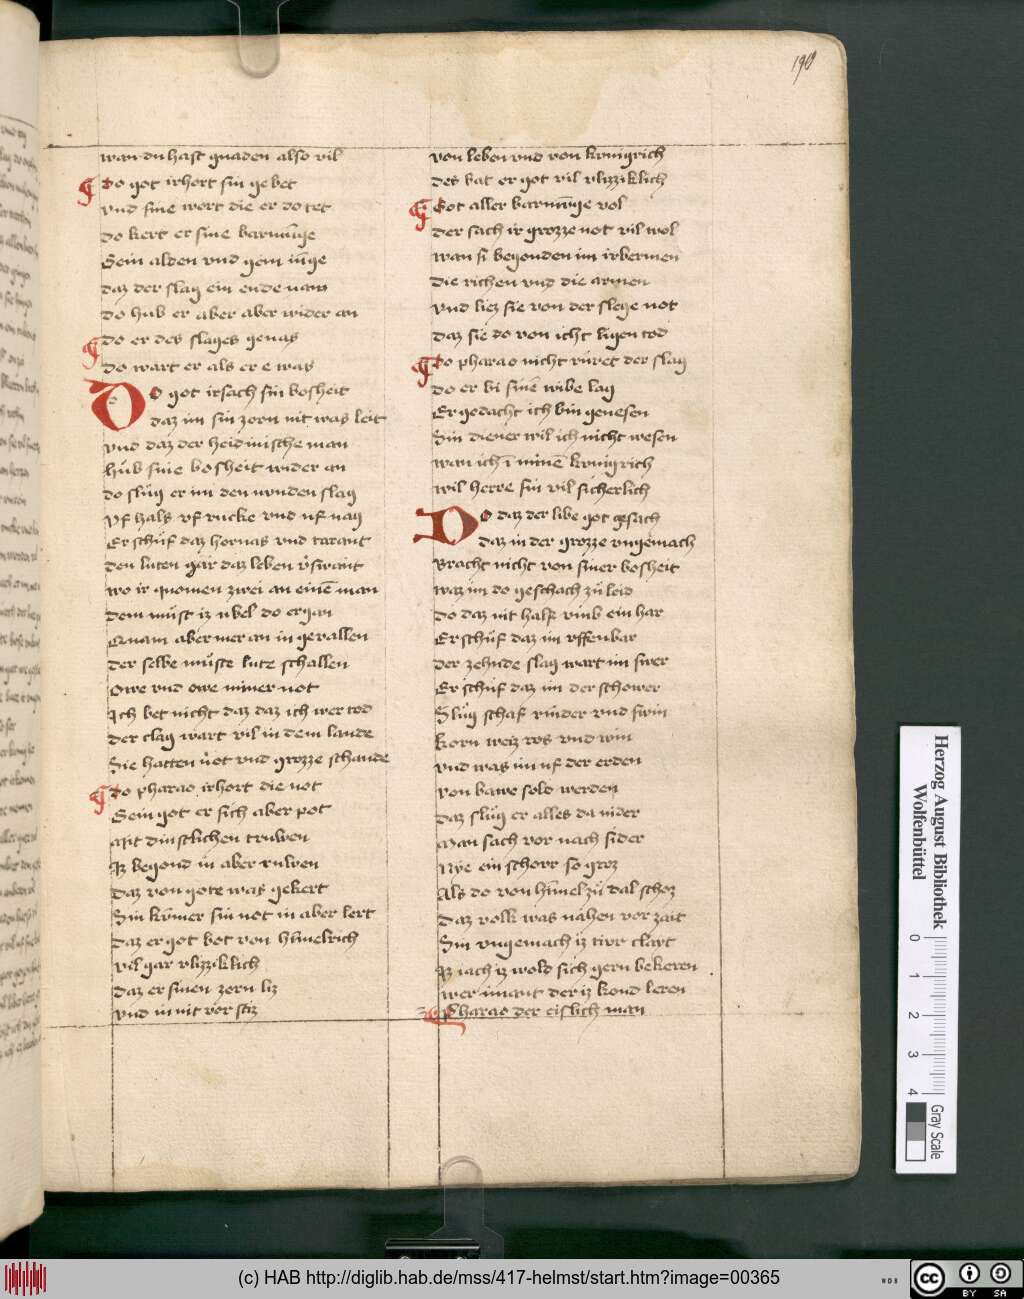 190
wan du hast gnaden also vil
Do got irhort sin gebet
vnd sine wort die er do tet
do kert er sine barmu̅ge
Gein alden vnd gein iu̅ge
daz der slag ein ende nam
do hub er aber aber wider an
Do er des slages genas
Do wart er als er e was
DO got irsach sin bosheit
daz im sin zorn nit was leit
vnd daz der heidinische man
hůb sine bosheit wider an
do slůg er im den nvnden slag
Vf hals vf rucke vnd uf nag
Er schůf daz hornas vnd tarant
den luten gar daz leben
wo ir quomen zwei an eine̅ man
dem můst iz vbel do ergan
Quam aber mer an in gevallen
der selbe můste lute schallen
owe vnd owe nimer not
Ich bet nicht daz daz ich wer tod
der clag wart vil in dem lande
Sie hatten not vnd grozze schande
Do pharao irhort die not
Gein got er sich aber pot
Mit dinstlichen truwen
Iz begond in aber ruwen
Daz von gote was gekert
Sin kumer sin not in aber lert
daz er got bot von himelrich
vil gar vlizziklich
daz er sinen zorn liz
vnd in nit vor stiz
von leben vnd von kunigrich
des bat er got vil vlizziklich
Got aller barmu̅ge vol
der sach ir grozze not vil wol
wan si begonden im irbermen
die richen vnd die armen
vnd liez sie von der slege not
daz sie do von icht ligen tod
Do pharao nicht růret der slag
do er bi sine̅ wibe lag
Er gedacht ich bin genesen
Sin diener wil ich nicht wesen
wan ich i̅ mine̅ kunigrich
wil herre sin vil sicherlich
DO daz der libe got gesach
daz in der grozze vngemach
Bracht nicht von siner bosheit
waz im do geschach zů leid
do daz nit half vmb ein har
Er schůf daz im vffenbar
der zehnde slag wart im swer
Er schuf daz im der schower
Slůg schaf rinder vnd swin
korn weiz ros vnd win
vnd was im uf der erden
von bawe sold werden
daz slůg er alles da nider
Man sach vor nach sider
Nye ein schovr so groz
Als do von himel zů dal schoz
daz volk was nahen vor zait
Sin vngemach iz tivr clait
Iz iach iz wold sich gern bekeren
wer imant der iz kond leren
Pharao der eislich man
Herzog August Bibliothek
Wolfenbüttel
0 1 2 3 4
Gray Scale
(c) HAB http://diglib.hab.de/mss/417-helmst/start.htm?image=00365
WDB
cc BY SA